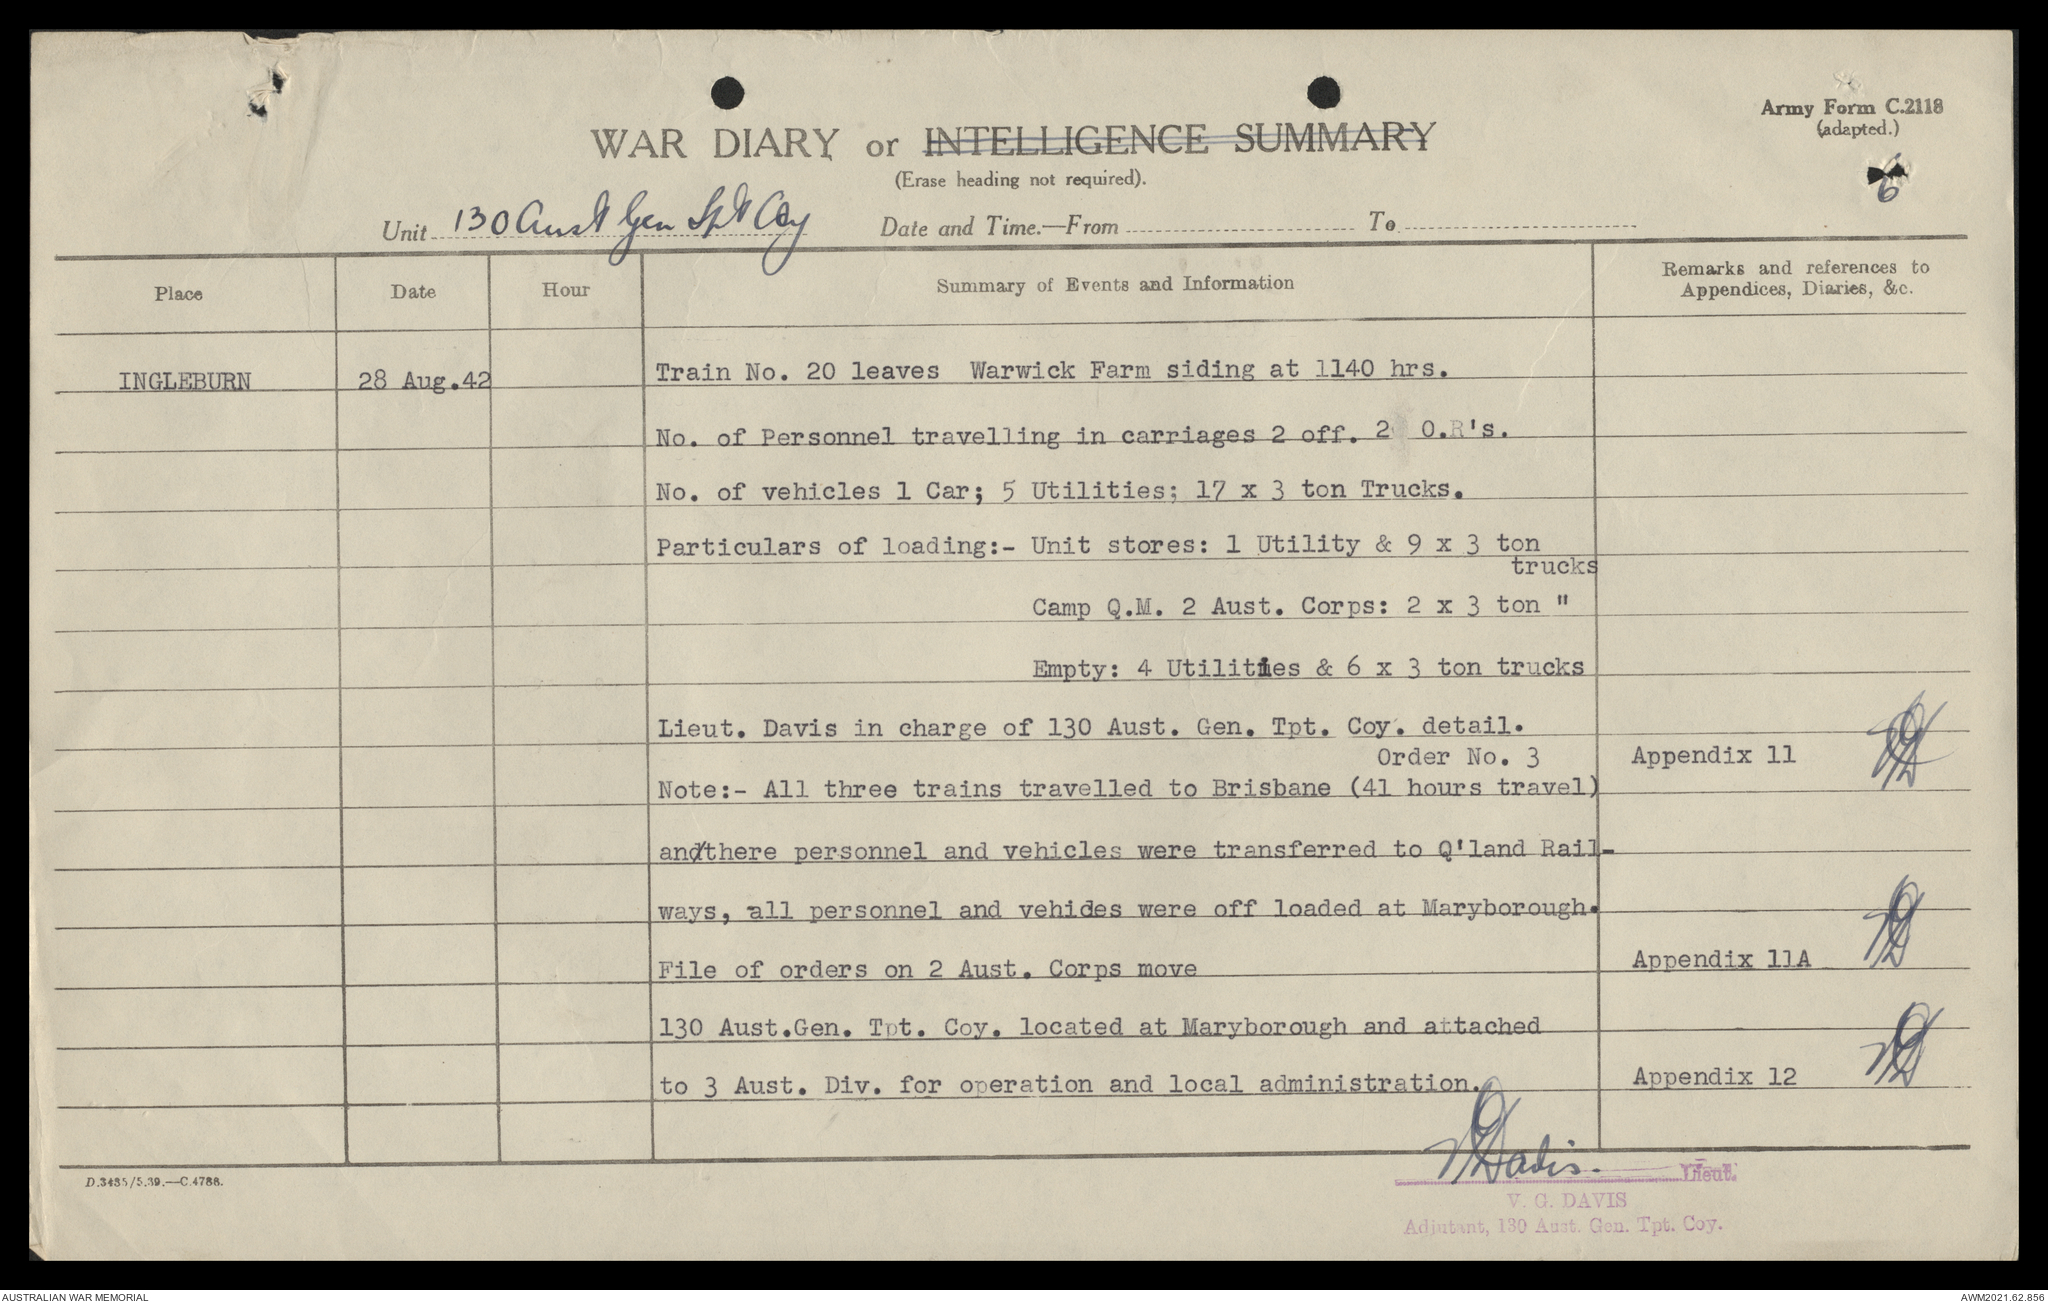 Army Form C.2118
(adapted.)
WAR DIARY or INTELLIGENCE SUMMARY
(Erase heading not required).
6
Unit 130 Aust Gen Tpt Coy Date and Time.—From To
Place Date Hour Summary of Events and Information Remarks and references to
Appendices, Diaries, &c.
INGLEBURN 28 Aug.42 Train No. 20 leaves Warwick Farm siding at 1140 hrs.
No. of Personnel travelling in carriages 2 off. 2 O.R's.
No. of vehicles 1 Car; 5 Utilities; 17 x 3 ton Trucks.
Particulars of loading:- Unit stores: 1 Utility & 9 x 3 ton
trucks
Camp Q.M. 2 Aust. Corps: 2 x 3 ton "
Empty: 4 Utilities & 6 x 3 ton trucks
Lieut. Davis in charge of 130 Aust. Gen. Tpt. Coy. detail.
Order No. 3 Appendix 11
Note:- All three trains travelled to Brisbane (41 hours travel)
and/there personnel and vehicles were transferred to Q'land Rail-
ways, all personnel and vehicles were off loaded at Maryborough.
File of orders on 2 Aust. Corps move Appendix 11A
130 Aust.Gen. Tpt. Coy. located at Maryborough and attached
to 3 Aust. Div. for operation and local administration. Appendix 12
VGDavis. Lieut.
V. G. DAVIS
Adjutant, 130 Aust. Gen. Tpt. Coy.
D.3435/5.39.—C.4788.
AUSTRALIAN WAR MEMORIAL AWM2021.62.856